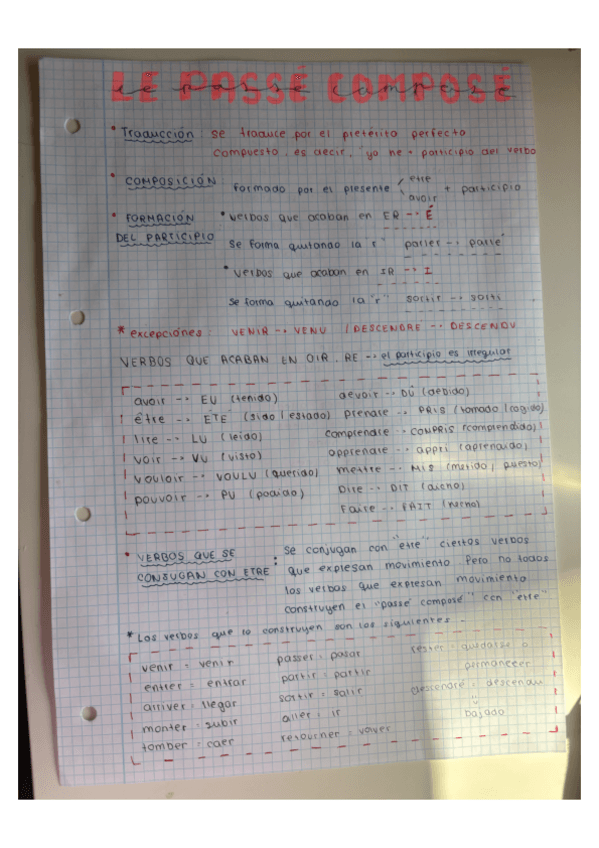 LE PASSÉ COMPOSÉ
le passé composé
* Traducción : se traduce por el pretérito perfecto
compuesto. es decir, "yo he + participio del verbo
* COMPOSICIÓN : formado por el presente être + participio
avoir
* FORMACIÓN DEL PARTICIPIO
* Verbos que acaban en ER --> É
Se forma quitando la "r" parler --> parlé
* Verbos que acaban en IR --> I
Se forma quitando la "r" sortir --> sorti
* excepciones : VENIR --> VENU / DESCENDRE --> DESCENDU
VERBOS QUE ACABAN EN OIR, RE --> el participio es irregular
avoir --> EU (tenido)
être --> ETE (sido / estado)
lire --> LU (leido)
voir --> VU (visto)
vouloir --> VOULU (querido)
pouvoir --> PU (podido)
devoir --> DÛ (debido)
prendre --> PRIS (tomado / cogido)
comprendre --> COMPRIS (comprendido)
apprendre --> appri (aprendido)
mettre --> MIS (metido, puesto)
Dire --> DIT (dicho)
Faire --> FAIT (hecho)
* VERBOS QUE SE CONJUGAN CON ETRE :
Se conjugan con "etre" ciertos verbos
que expresan movimiento. Pero no todos
los verbos que expresan movimiento
construyen el "passé composé" con "etre"
* Los verbos que lo construyen son los siguientes.
venir = venir
entrer = entrar
arriver = llegar
monter = subir
tomber = caer
passer = pasar
partir = partir
sortir = salir
aller = ir
retourner = volver
rester = quedarse o
permanecer
descendre = descendu
bajado